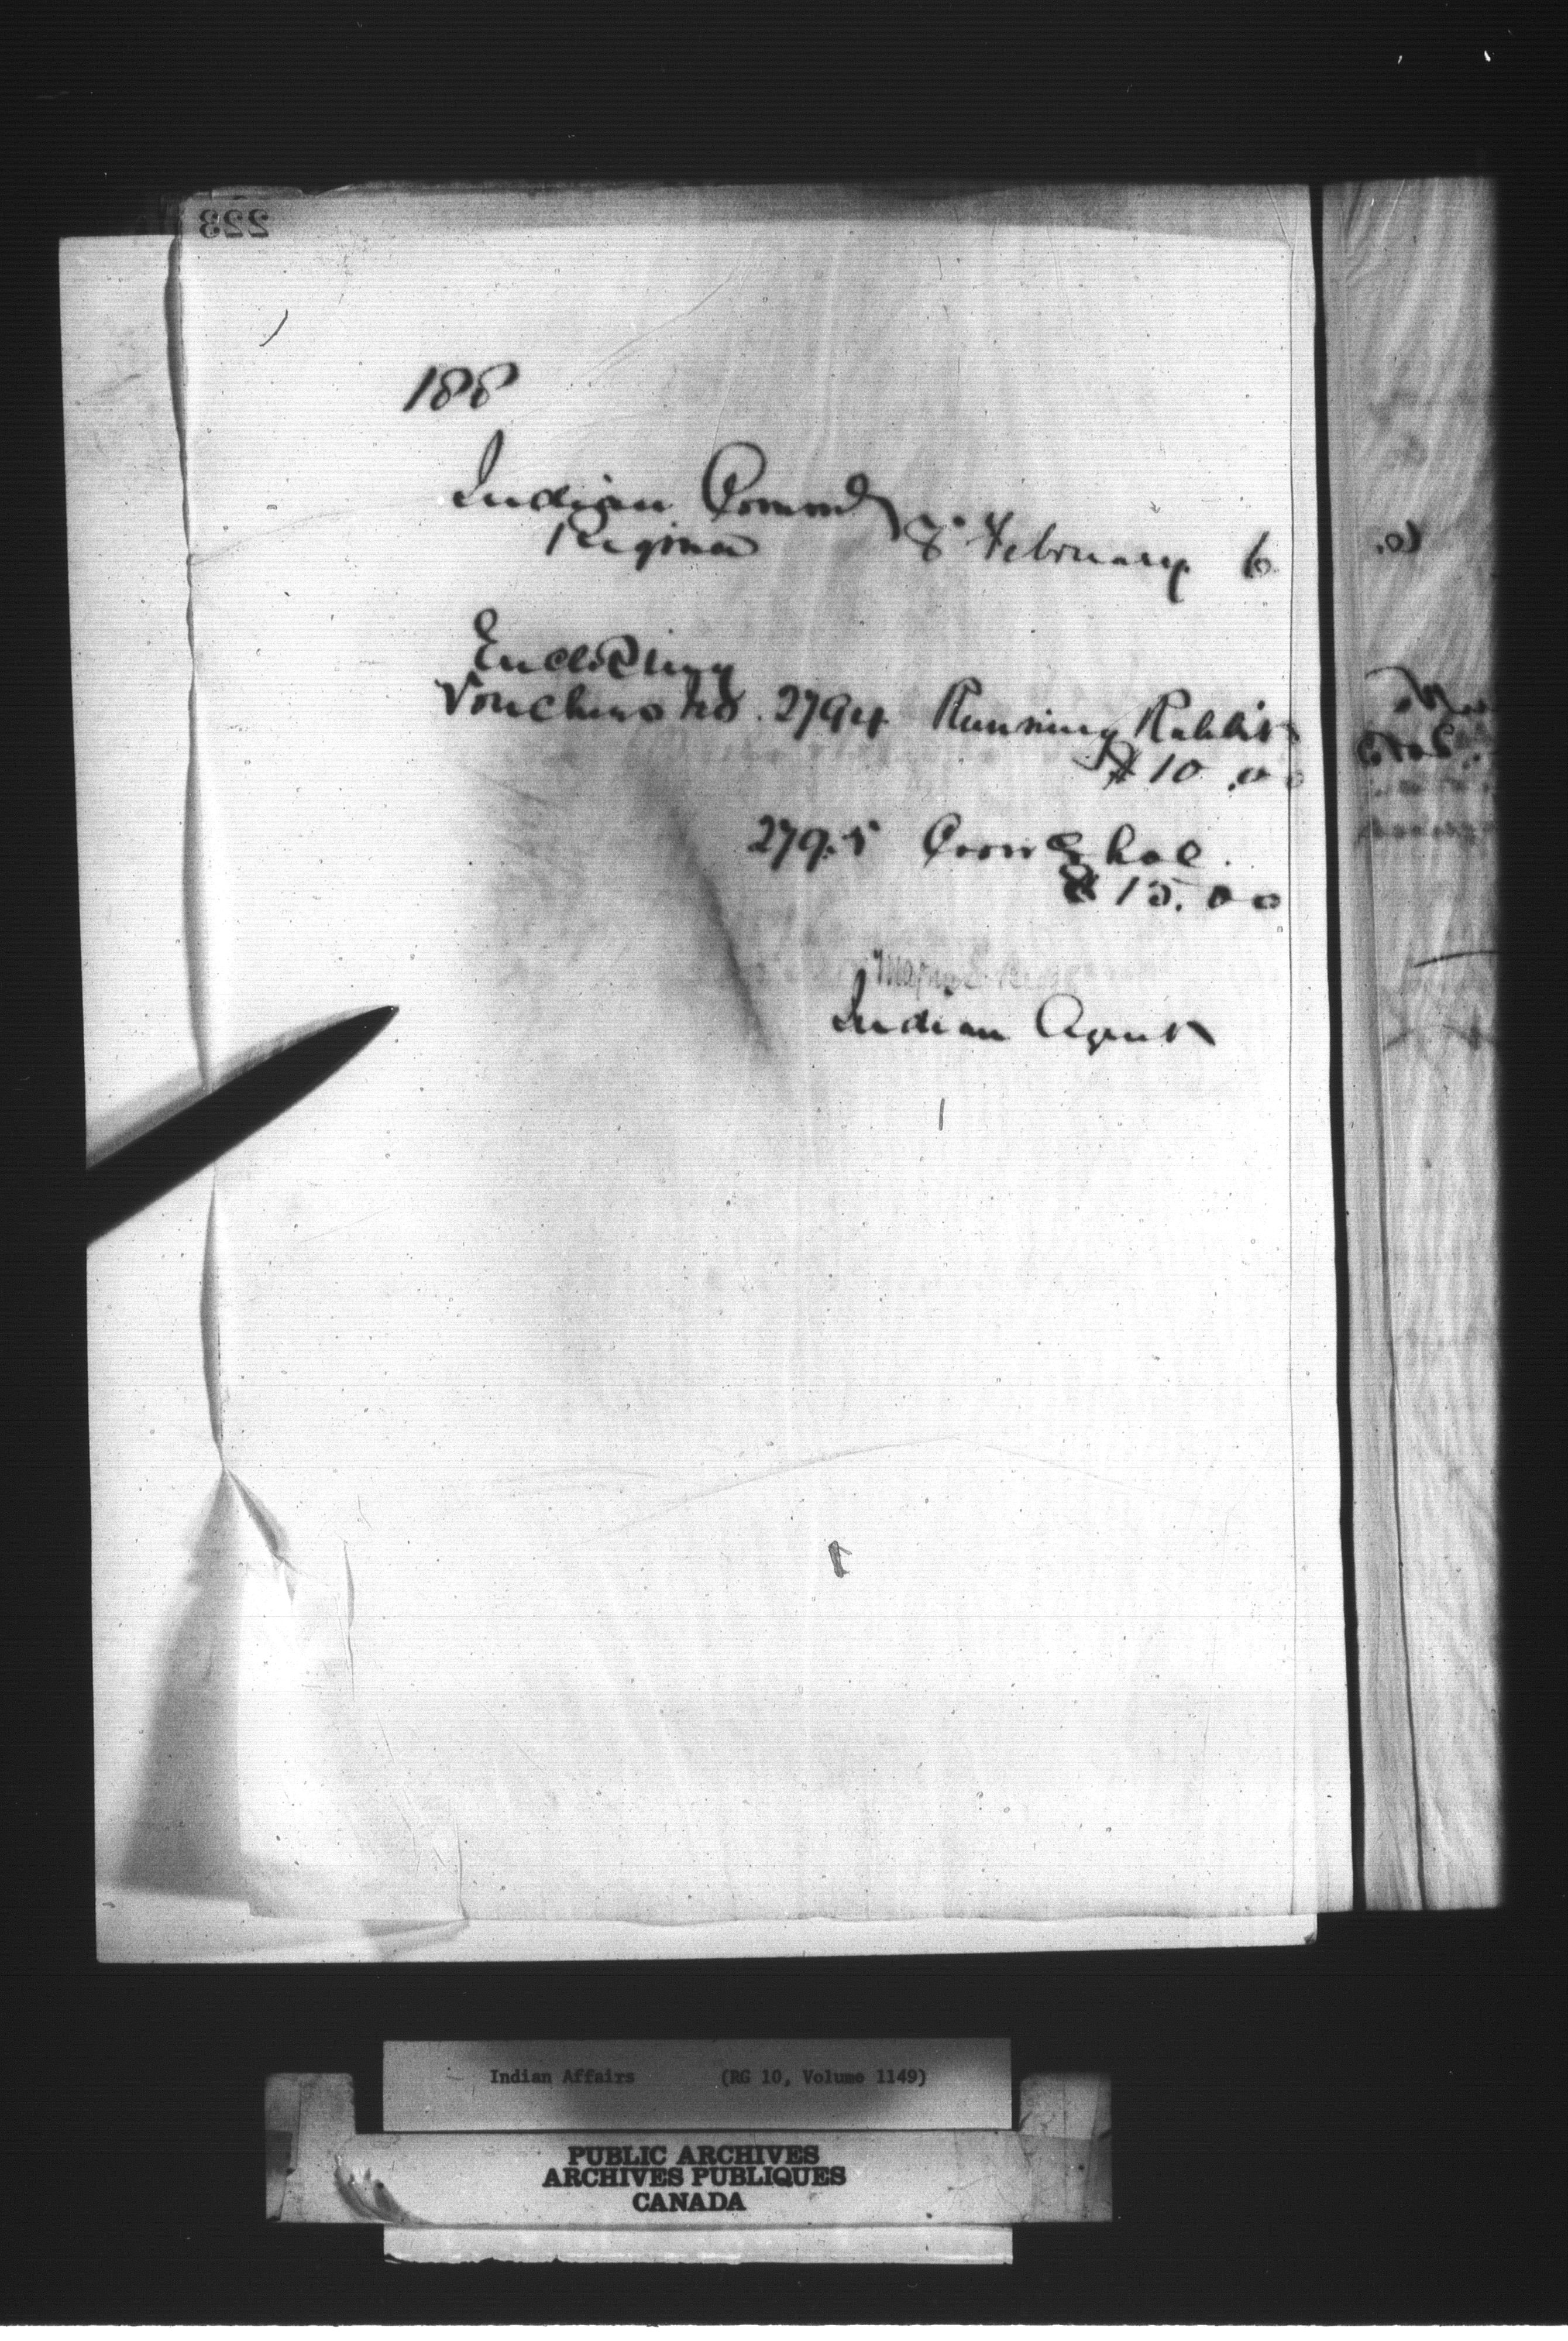 223
188
Indian Commr
Regina
8th February 6
Enclosing
Vouchers No. 2794 Running Rabbit
$10.00
2795 Crow Shoe.
$15.00
Indian Agent
Indian Affairs (RG 10, Volume 1149)
PUBLIC ARCHIVES
ARCHIVES PUBLIQUES
CANADA